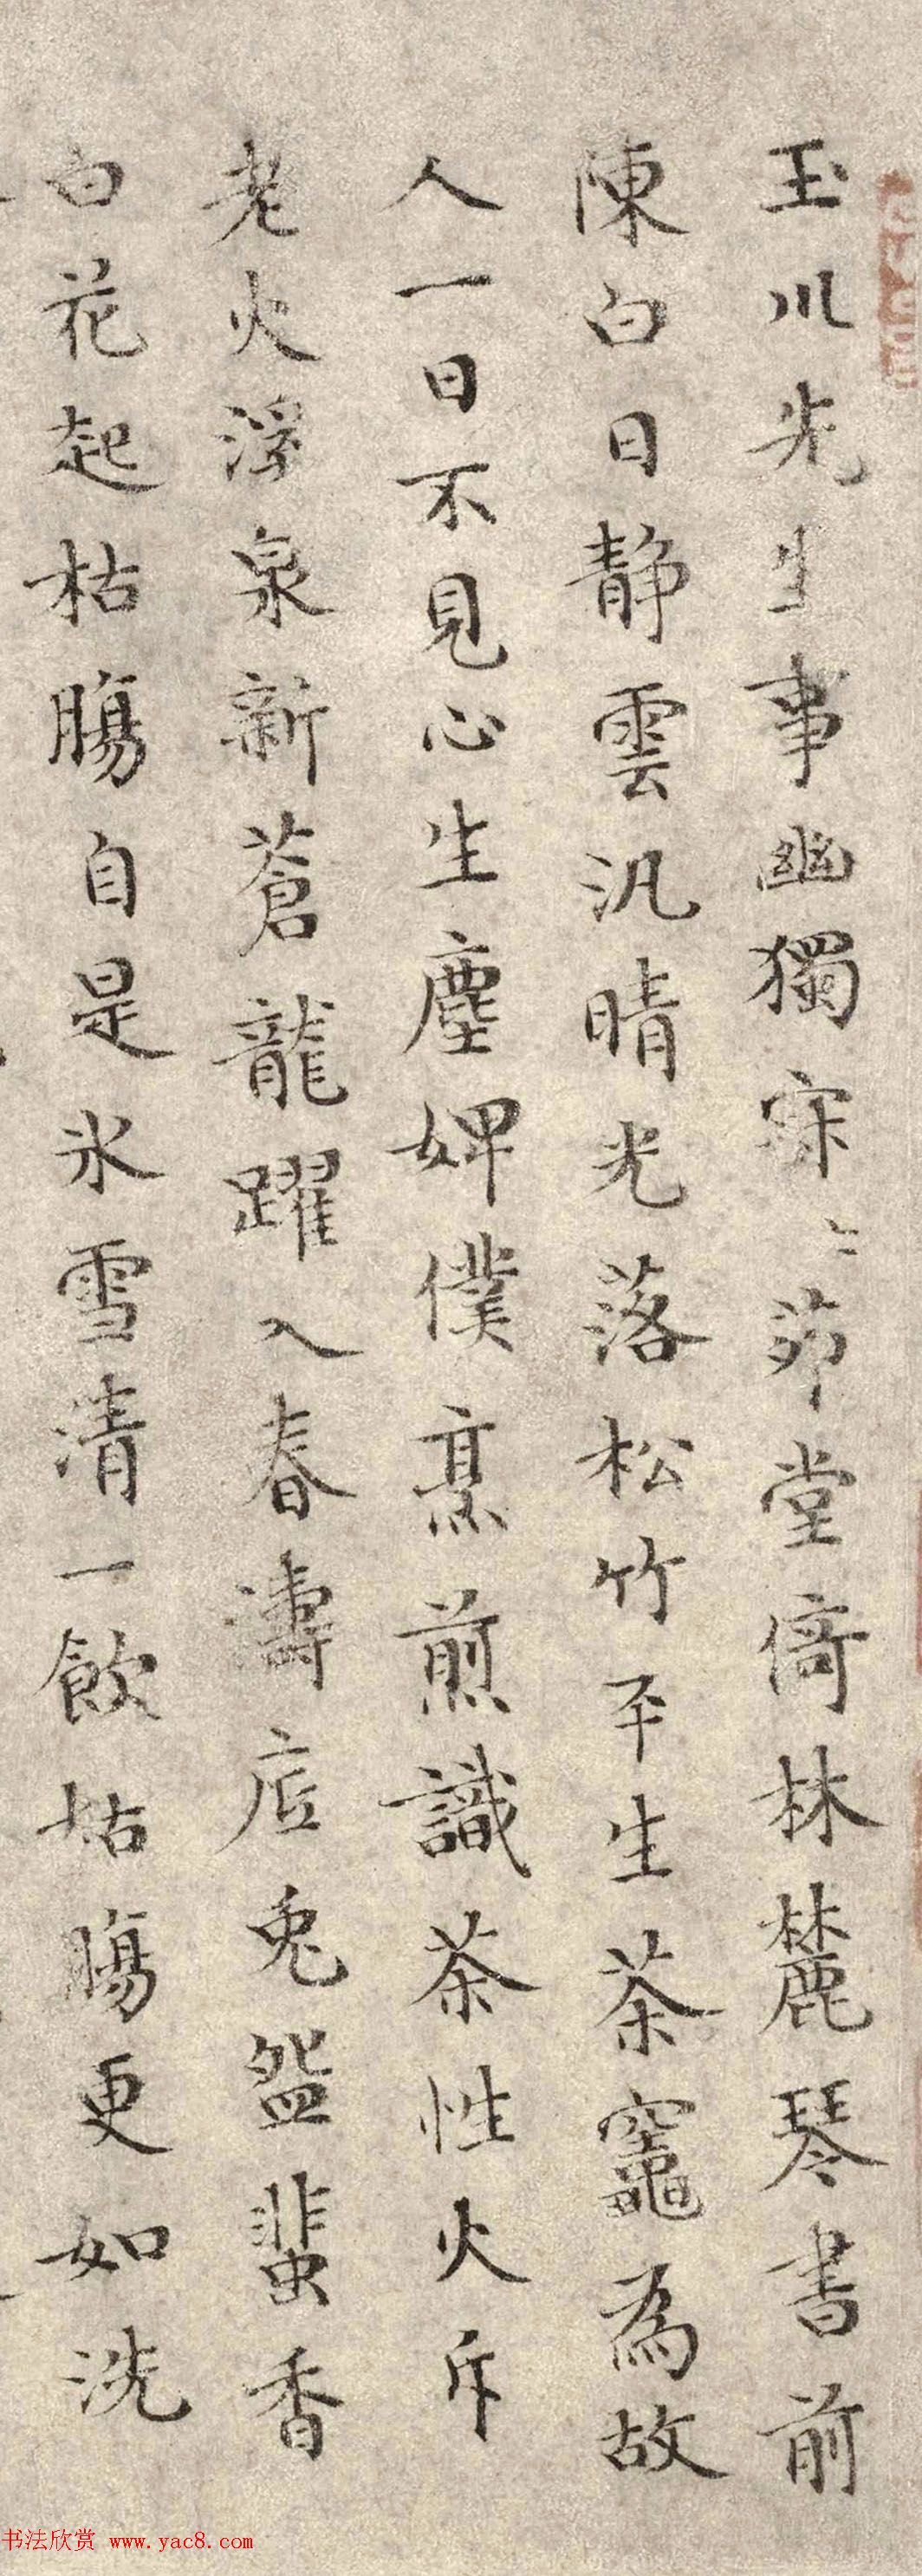 玉川先生事幽獨寂〻茆堂倚林麓琴書前
陳白日静雲汎晴光落松竹平生茶竈為故
人一日不見心生塵婢僕烹煎識茶性火斥
老火浮泉新蒼龍躍入春濤底兔盌蜚香
白花起枯腸自是氷雪清一飲枯腸更如洗
书法欣赏 www.yac8.com